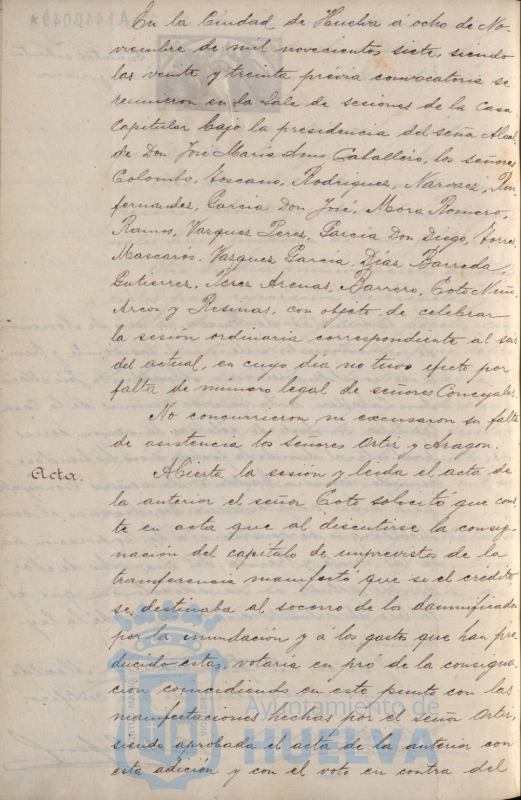 En la Ciudad de Huelva á ocho de No-
viembre de mil novecientos siete, siendo
las veinte y treinta prévia convocatoria se
reunieron en la Sala de seciones de la Casa
Capitular bajo la presidencia del señor Alcal-
de Don José María Amo Caballero, los señores
Colombo, Toscano, Rodriguez, Narvaez,
Fernandez, Garcia Don José, Mora Romero,
Ramos, Vazquez Perez, Garcia Don Diego, Torres
Mascarós, Vazquez Garcia, Diaz Barreda,
Gutierrez, Perez Arenas, Barrero, Coto Niño,
Arcos y Resinas, con objeto de celebrar
la sesión ordinaria correspondiente al seis
del actual, en cuyo dia no tuvo efecto por
falta de número legal de señores Concejales.
No concurrieron ni excusaron su falta
de asistencia los señores Ortiz y Aragon.
Acta.
Abierta la sesión y leida el acta de
la anterior el señor Coto solicitó que cons-
te en acta que al discutirse la consig-
nación del capitulo de imprevistos de la
transferencia manifestó que si el crédito
se destinaba al socorro de los damnificados
por la inundación y á los gastos que han pro-
ducido estas, votaria en pró de la consigna-
cion coincidiendo en este punto con las
manifestaciones hechas por el señor Ortiz,
siendo aprobada el acta de la anterior con
esta adición y con el voto en contra del
Ayuntamiento de
HUELVA